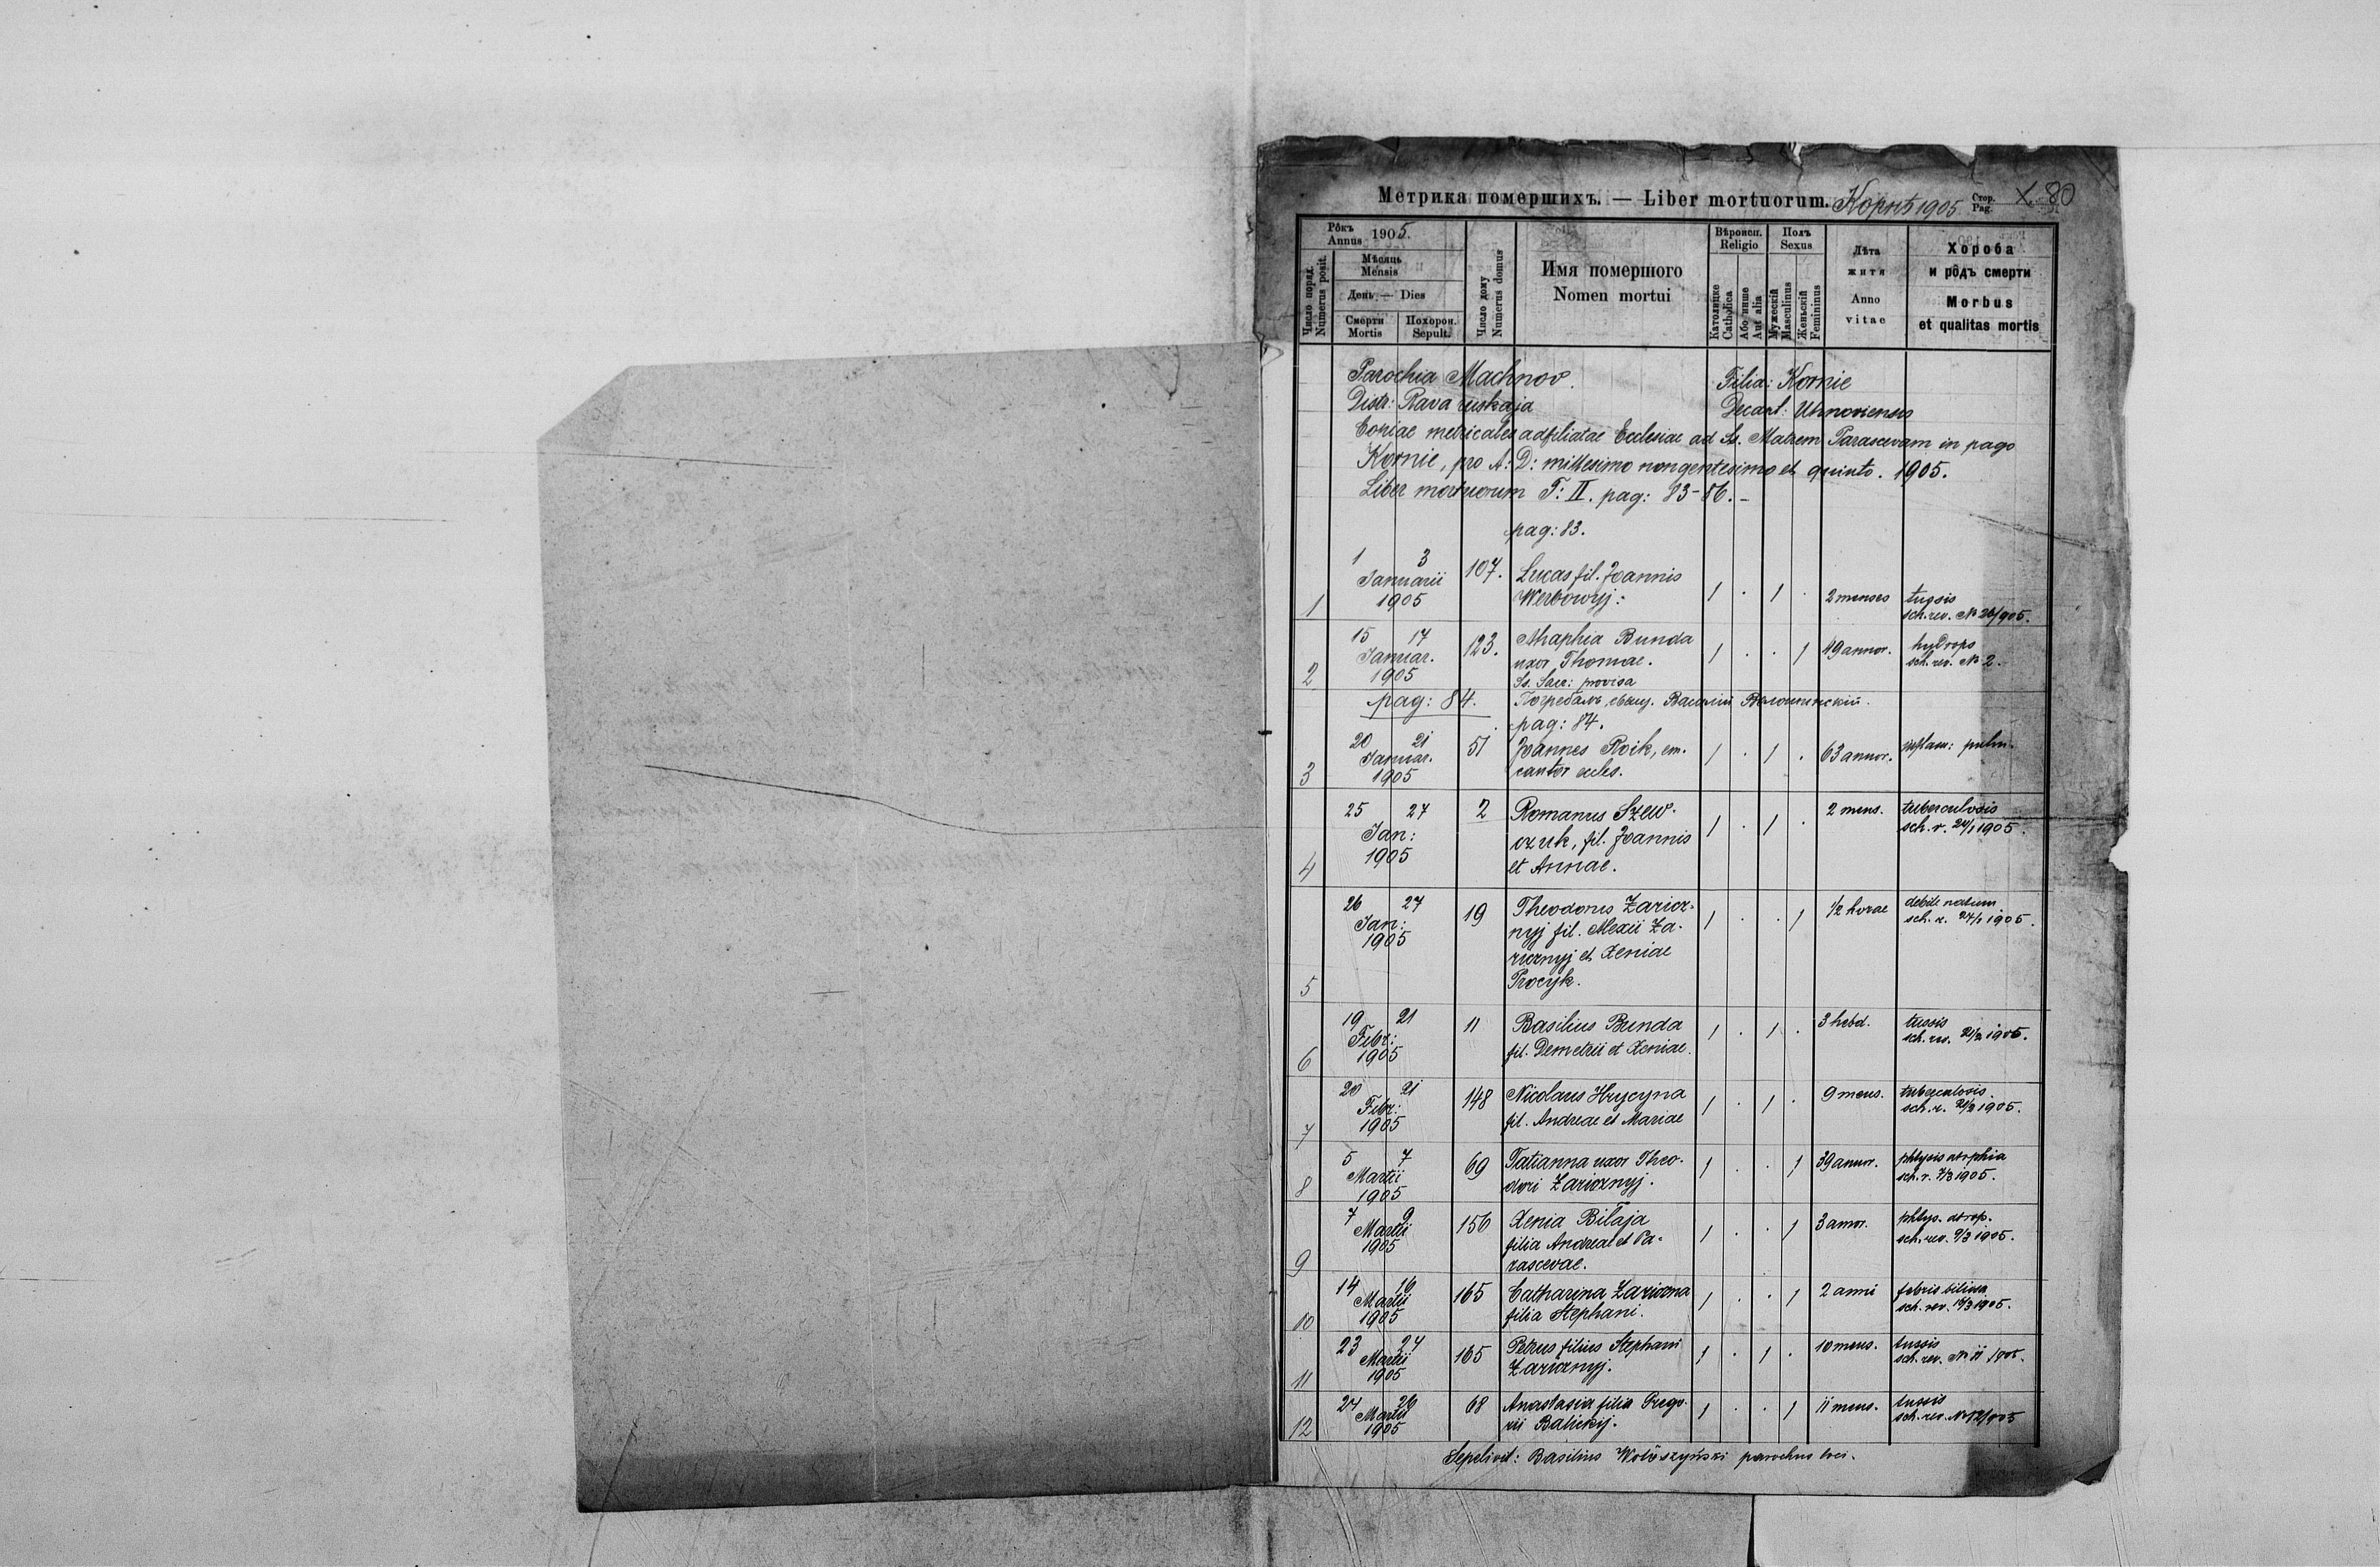 Метрика помершихъ. — Liber mortuorum. Корнѣ 1905 Стор. Pag. 80
Рôкъ Annus 1905.
Число поряд. Numerus posit.
Мѣсяць Mensis
День — Dies
Смерти Mortis
Похорон. Sepult.
Число дому Numerus domus
Имя помершого Nomen mortui
Вѣроисп. Religio
Католицке Catholica
Або инше Aut alia
Полъ Sexus
Мужескій Masculinus
Женьскій Femininus
Лѣта житя Anno vitae
Хороба и рôдъ смерти Morbus et qualitas mortis
Parochia Machnov. Filia: Kornie
Distr: Rava ruskaja Decant: Uhnoviensis
Copiae metricales adfiliatae Ecclesiae ad Ss. Matrem Parascevam in pago
Kornie, pro A: D: millesimo nongentesimo et quinto. 1905.
Liber mortuorum T: II. pag: 83-86.-
pag: 83.
1 3 107. Lucas fil. Joannis
Januarii Werbowyj: 1 . 1 . 2 menses tussis
1 1905 sch. rev. № 26/905.
15 17 123. Ahaphia Bunda 1 . . 1 49 annor. hydrops
Januar. uxor Thomae. sch. rev. № 2.
2 1905 Ss. Sacr: provisa
pag: 84. Погребалъ свящ. Василій Волошинскій.
pag: 84.
20 21 51 Joannes Roik, em. 1 . 1 . 63 annor. inflam: pulm.
Januar. cantor eccles.
3 1905
25 27 2 Romanus Szew- 1 . 1 . 2 mens. tuberculosis
Jan: czuk, fil. Joannis sch. r. 24/1 1905.
4 1905 et Annae.
26 27 19 Theodorus Zaricz- 1 . . 1 1/2 horae debile natum
Jan: nyj fil. Alexii Za- sch. r. 27/1 1905.
1905 ricznyj et Xeniae
5 Procyk.
19 21 11 Basilius Bunda 1 . 1 . 3 hebd. tussis
Febr: fil. Demetrii et Xeniae. sch. rev. 21/2 1905.
6 1905
20 21 148 Nicolaus Hrycyna 1 . 1 . 9 mens. tuberculosis.
Febr: fil. Andreae et Mariae sch. r. 21/2 1905.
7 1905
5 7 69 Tatianna uxor Theo- 1 . . 1 39 annor. phtysis atrphia
Martii dori Zaricznyj. sch. r. 7/3 1905.
8 1905
7 9 156 Xenia Biłaja 1 . . 1 3 annor. phtys. atrop.
Martii filia Andreae et Pa- sch. rev. 9/3 1905.
9 1905 rascevae.
14 16 165 Catharina Zariczna 1 . . 1 2 anni febris biliosa
Martii filia Stephani. sch. rev. 16/3 1905.
10 1905
23 24 165 Petrus filius Stephani 1 . 1 . 10 mens. tussis
Martii Zaricznyj. sch. rev. № 11 1905.
11 1905
24 26 68 Anastasia filia Grego- 1 . . 1 11 mens. tussis
Martii rii Balickyj. sch. rev. № 12/905
12 1905
Sepelivit: Basilius Wołoszyński parochus loci.